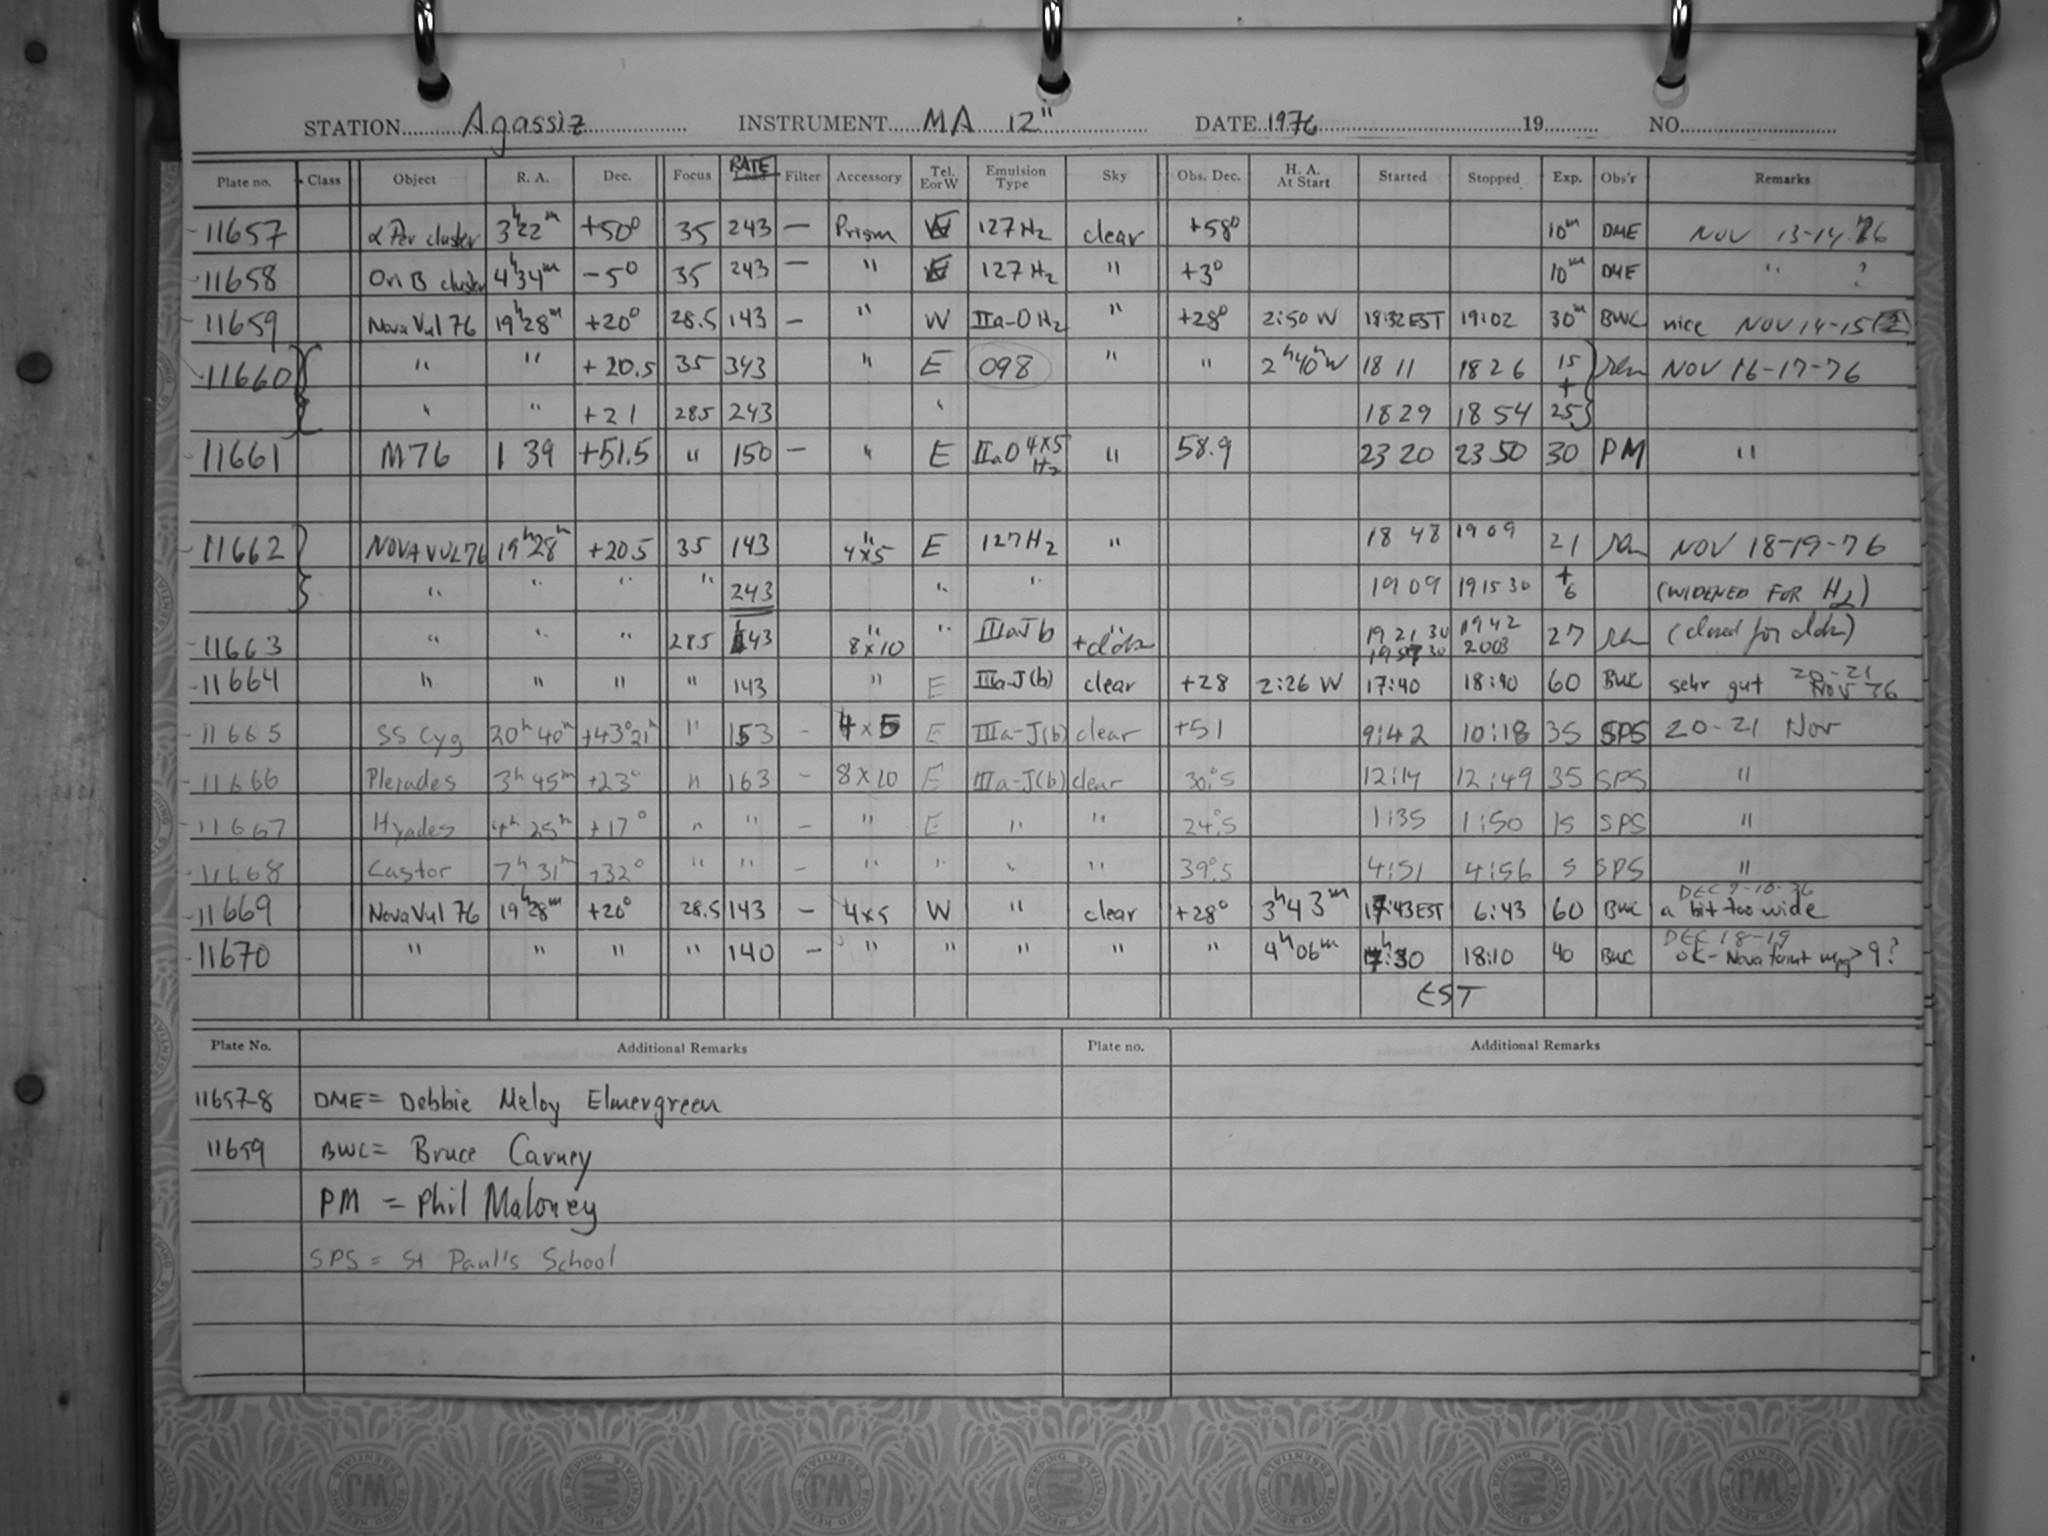 STATION Agassiz INSTRUMENT MA 12" DATE 1976 19 NO.
Plate no. Class Object R. A. Dec. Focus RATE Filter Accessory Tel. E or W Emulsion Type Sky Obs. Dec. H. A. At Start Started Stopped Exp. Obs'r Remarks
11657 α Per cluster 3h22m +50° 35 243 — Prism W 127 H2 clear +58° 10m DME NOV 13-14 76
11658 Ori B cluster 4h34m -5° 35 243 — " 127 H2 " +3° 10m DME " ?
11659 Nova Vul 76 19h28m +20° 28.5 143 — " W IIa-O H2 " +28° 2:50 W 18:32 EST 19:02 30m BWC nice NOV 14-15
11660 " " +20.5 35 343 " E 098 " " 2h40m W 18 11 18 26 15 NOV 16-17-76
" " +21 285 243 " 18 29 18 54 + 25
11661 M76 1 39 +51.5 " 150 — " E IIaO 4x5 H2 " 58.9 23 20 23 50 30 PM "
11662 NOVA VUL 76 19h28m +20.5 35 143 " 4x5 E 127 H2 " 18 48 19 09 21 NOV 18-19-76
" " " " 243 " " 19 09 19 15 30 + 6 (WIDENED FOR H2)
11663 " " " 285 143 " 8x10 " IIIaJb " + 19 21 30 19 42 27 (closed for
19 57 30 2003
11664 " " " " 143 " E IIIa-J(b) clear +28 2:26 W 17:40 18:40 60 BWC sehr gut 20-21 Nov 76
11665 SS Cyg 20h 40m +43°21' " 153 - 4 x 5 E IIIa-J(b) clear +51 9:42 10:18 35 SPS 20-21 Nov
11666 Pleiades 3h 45m +23° " 163 - 8 x 10 E IIIa-J(b) clear 30.°5 12:14 12:49 35 SPS "
11667 Hyades 4h 25m +17° " " - " E " " 24.°5 1:35 1:50 15 SPS "
11668 Castor 7h 31m +32° " " - " " " " 39.°5 4:51 4:56 5 SPS "
11669 Nova Vul 76 19h28m +20° 28.5 143 — 4x5 W " clear +28° 3h43m 17:43 EST 6:43 60 BWC DEC 9-10-76 a bit too wide
11670 " " " " 140 — " " " " " 4h06m 17:30 18:10 40 BWC DEC 18-19 OK - Nova faint mpg > 9?
EST
Plate No. Additional Remarks Plate no. Additional Remarks
11657-8 DME = Debbie Meloy Elmergreen
11659 BWC = Bruce Carney
PM = Phil Maloney
SPS = St Paul's School